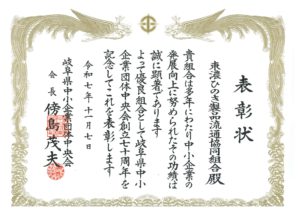 表彰状
東濃ひのき製品流通協同組合殿
貴組合は多年にわたり中小企業の
発展向上に努められたその功績は
誠に顕著であります
よって優良組合として岐阜県中小
企業団体中央会創立七十周年を
記念してこれを表彰します
令和七年十一月七日
岐阜県中小企業団体中央会
会長 傍島茂夫